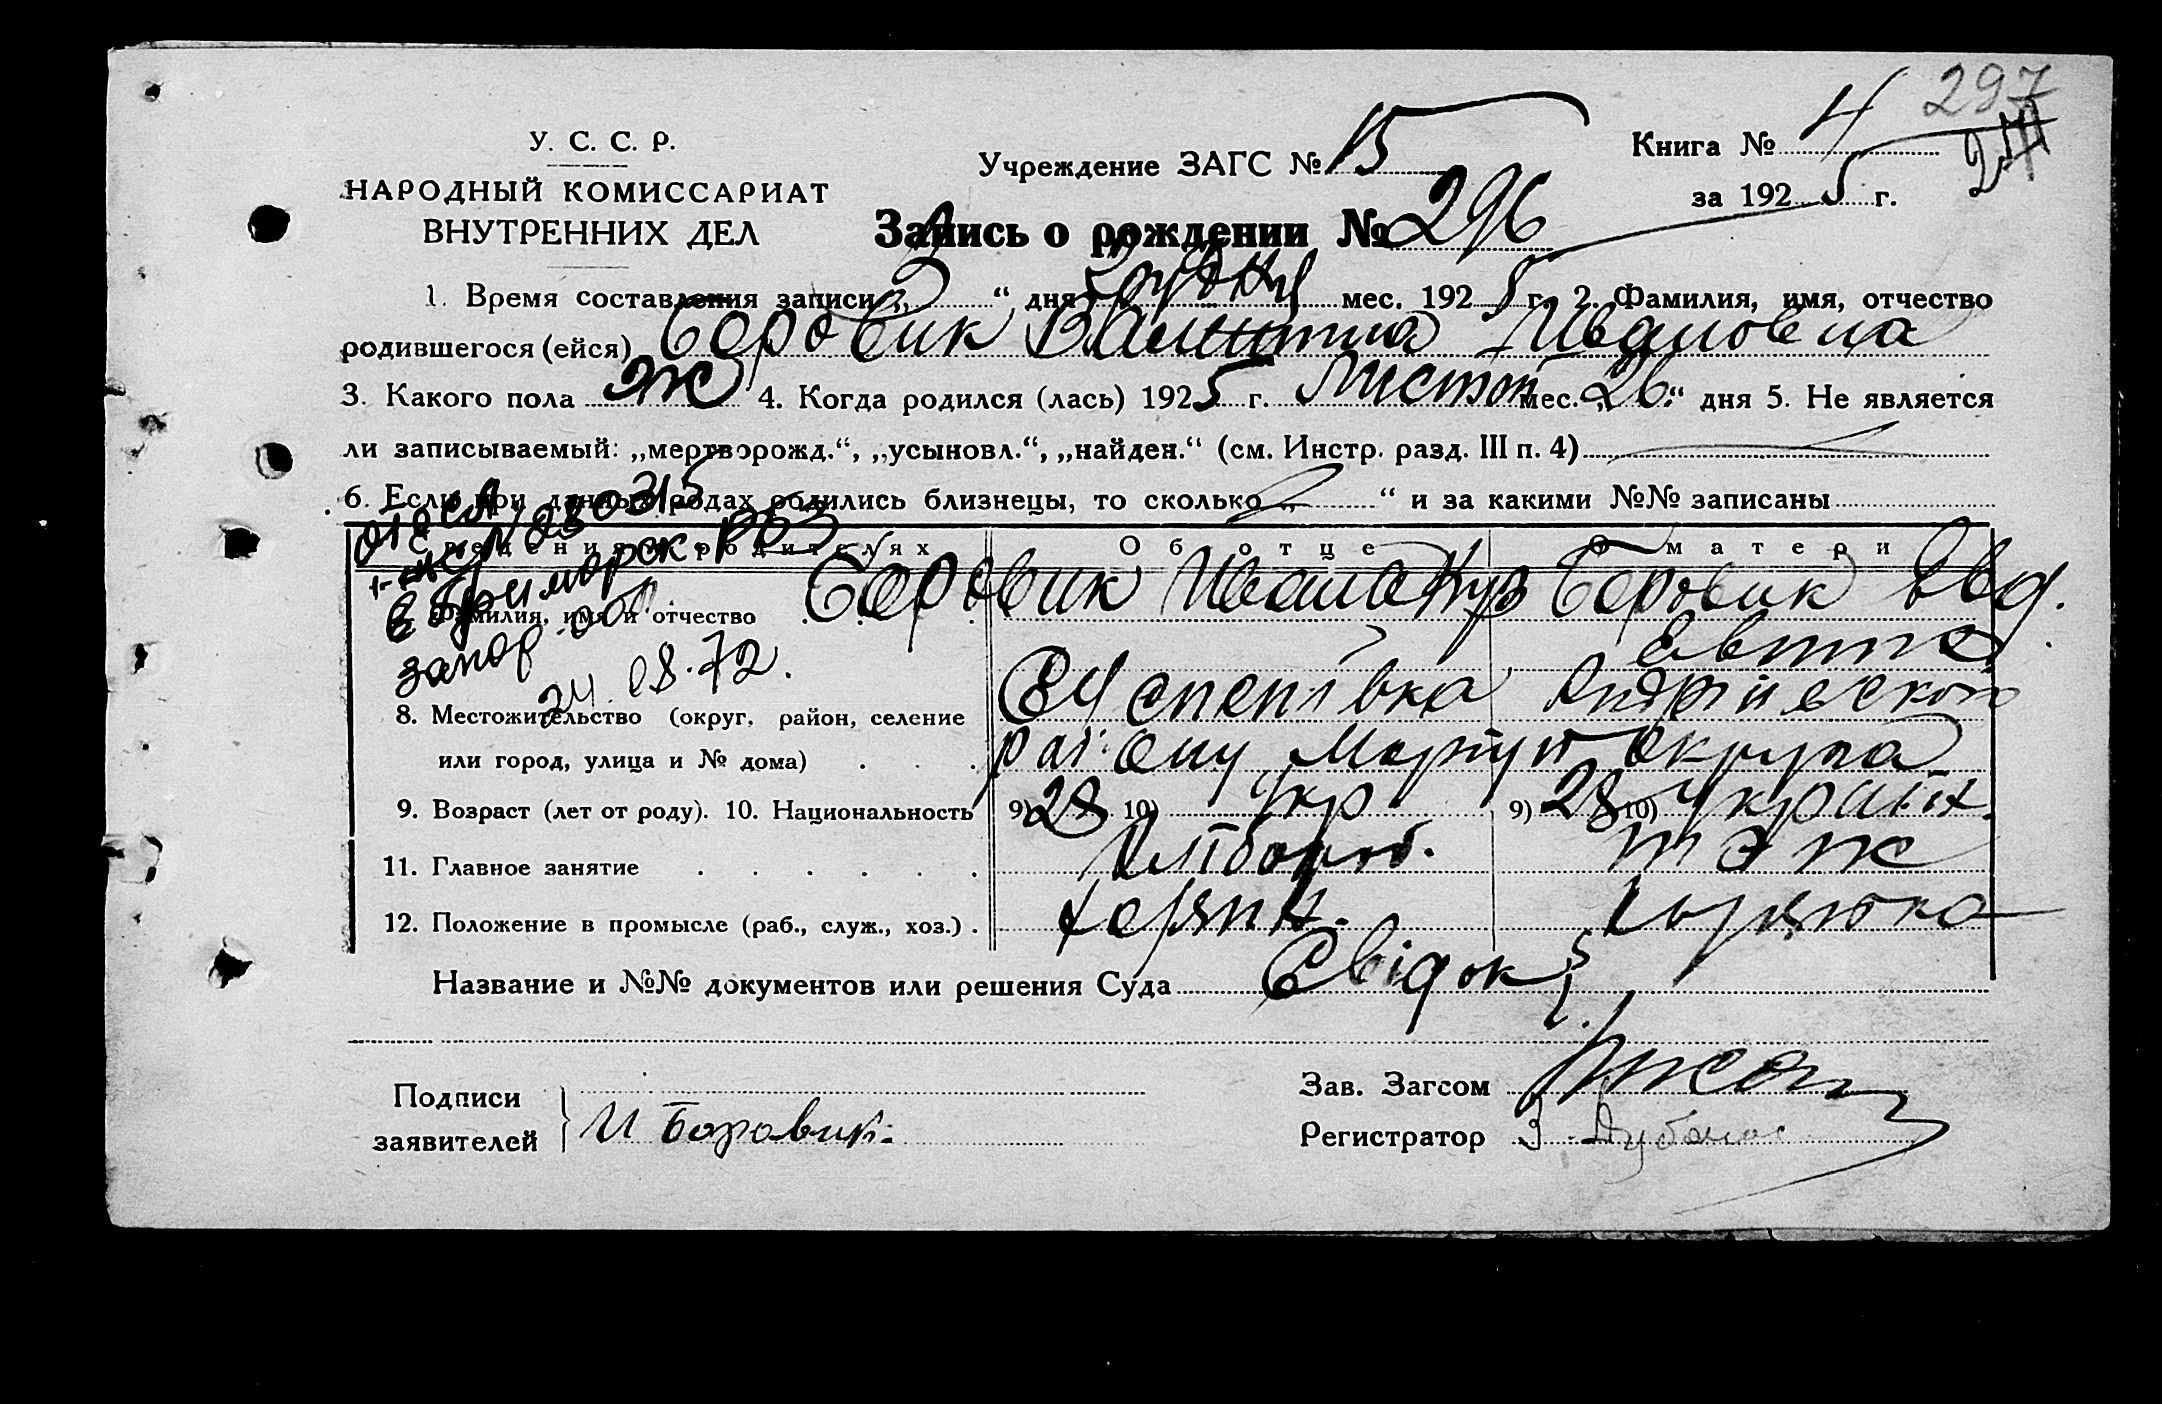 297
У. С. С. Р.
НАРОДНЫЙ КОМИССАРИАТ
ВНУТРЕННИХ ДЕЛ
Учреждение ЗАГС № 15
Книга № 4
за 1925 г.
Запись о рождении № 296
1. Время составления записи „2“ дня Грудня мес. 1925 г. 2. Фамилия, имя, отчество
родившегося (ейся) Боровик Валентина Ивановна
3. Какого пола ж 4. Когда родился (лась) 1925 г. Листоп мес. „26“ дня 5. Не является
ли записываемый: „мертворожд.“, „усыновл.“, „найден.“ (см. Инстр. разд. III п. 4)
6. Если при данных родах родились близнецы, то сколько „ “ и за какими №№ записаны
Сведения о родителях
Об отце
О матери
080315
Приморск
запор. об.
24.08.72.
Фамилия, имя и отчество
Боровик Ивана Куз
Боровик Явд.
8. Местожительство (округ, район, селение
или город, улица и № дома)
району Маріуп округа
9. Возраст (лет от роду). 10. Национальность
9) 28 10) Укр
9) 28 10) Україн.
11. Главное занятие
Хлібороб.
тэж
12. Положение в промысле (раб., служ., хоз.)
Название и №№ документов или решения Суда Свідок
Подписи
заявителей
И Боровик
Зав. Загсом
Регистратор